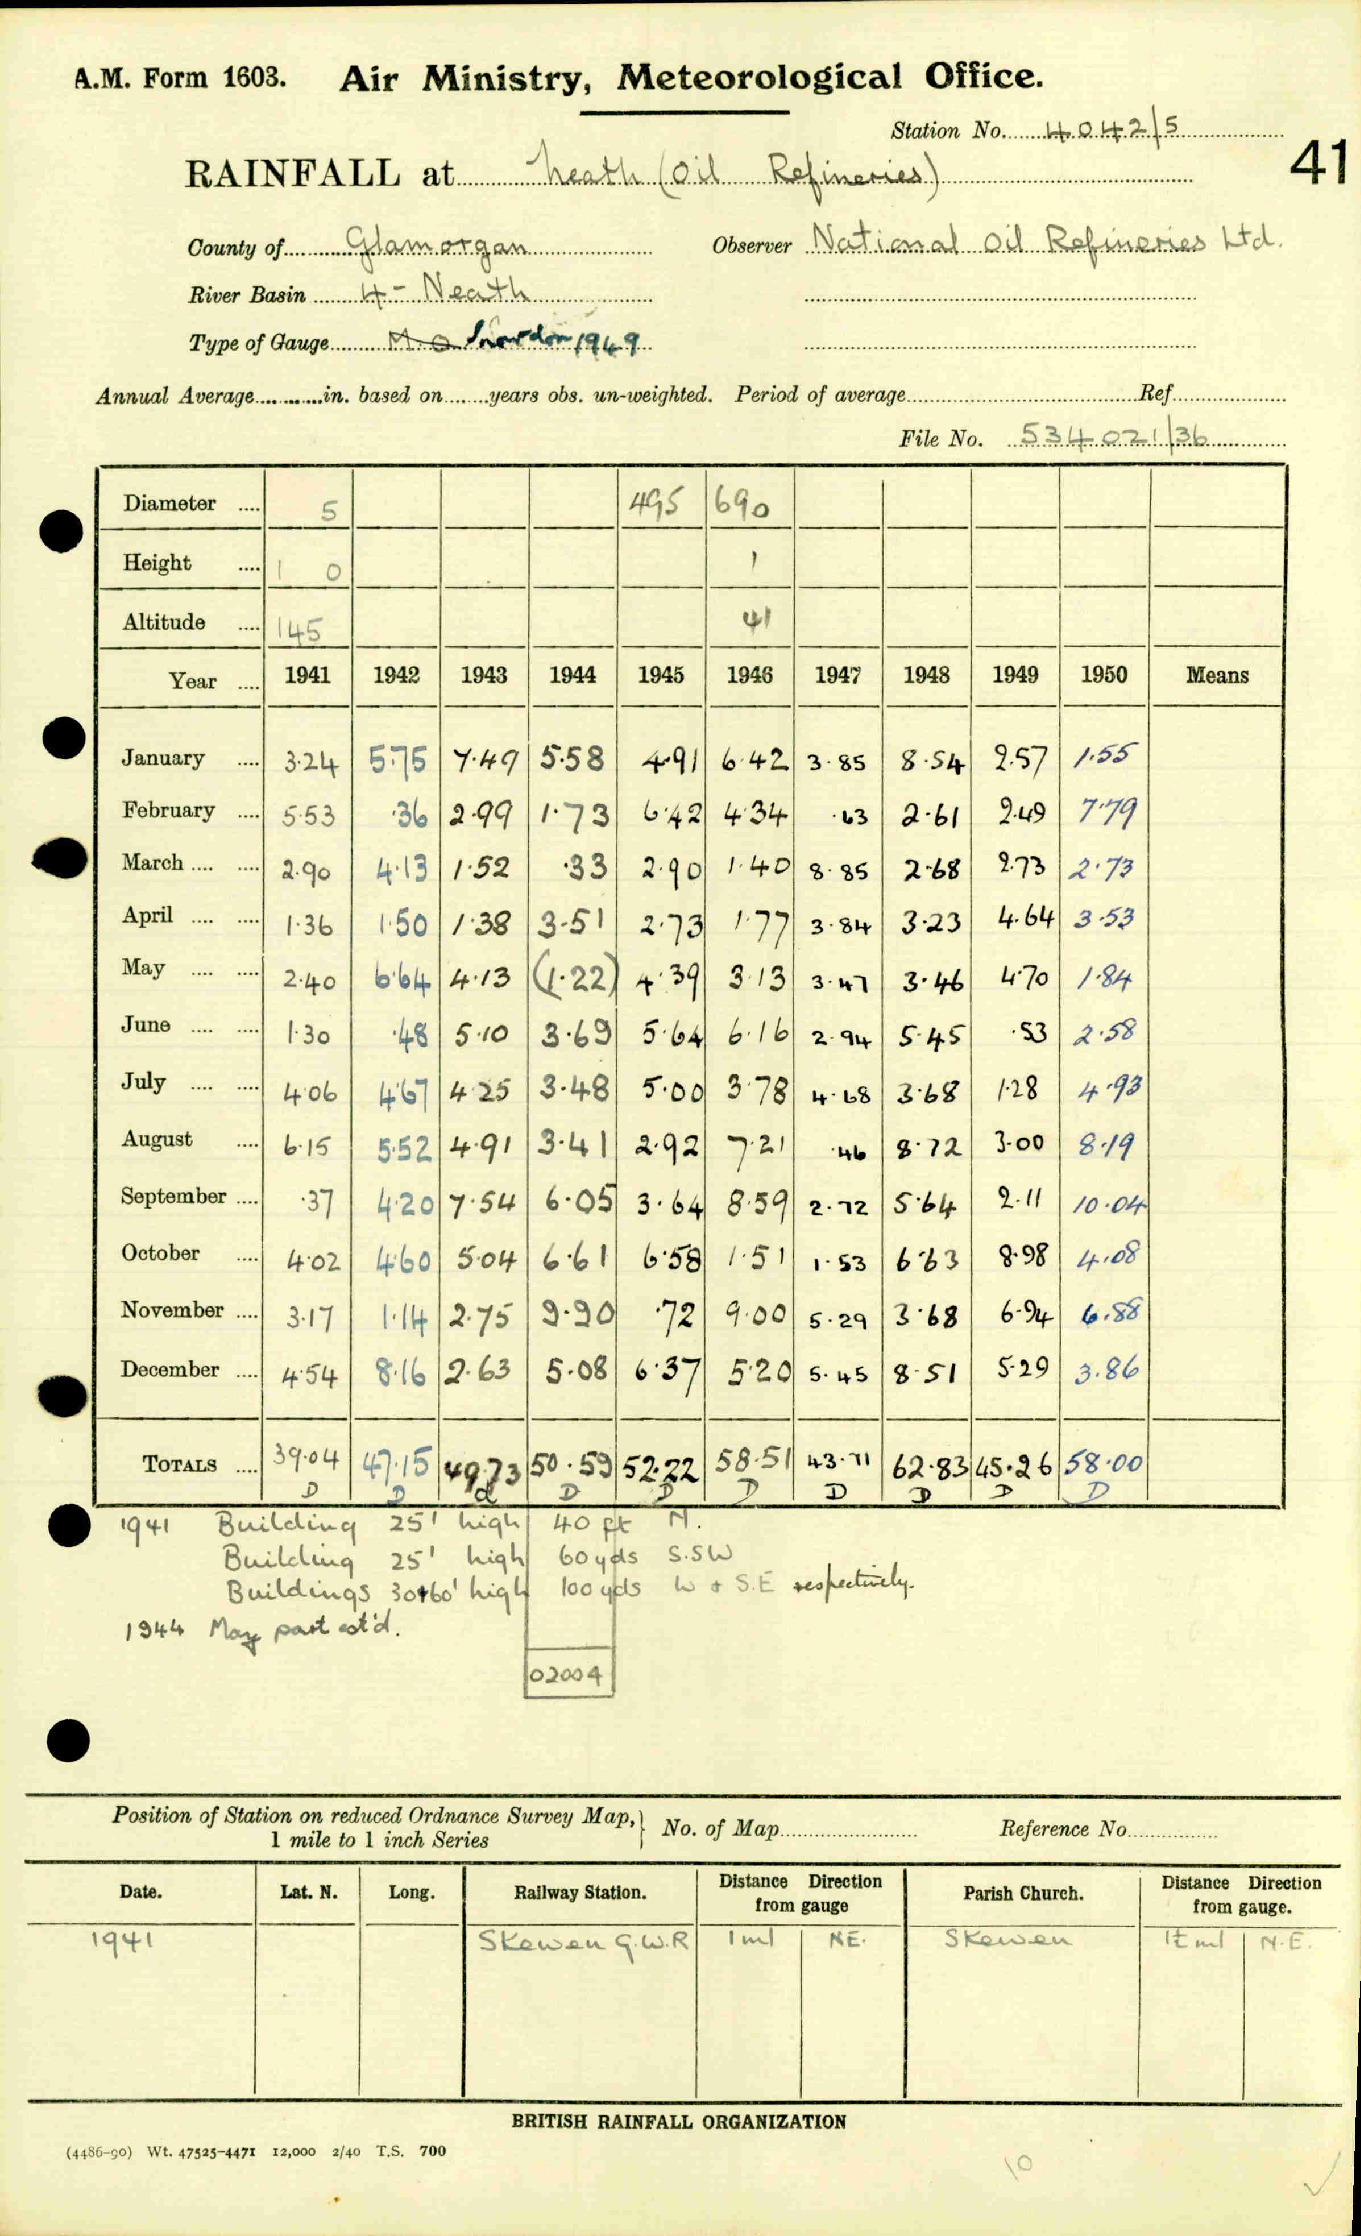 A.M. Form 1603. Air Ministry, Meteorological Office.
Station No. 4042/5
41
RAINFALL at Neath (Oil Refineries)
County of Glamorgan Observer National Oil Refineries Ltd.
River Basin 4 - Neath
Type of Gauge M.O. Snowdon 1949
Annual Average in. based on years obs. un-weighted. Period of average Ref
File No. 534021/36
Diameter 5 495 690
Height 1 0 1
Altitude 145 41
Year 1941 1942 1943 1944 1945 1946 1947 1948 1949 1950 Means
January 3.24 5.75 7.49 5.58 4.91 6.42 3.85 8.54 2.57 1.55
February 5.53 .36 2.99 1.73 6.42 4.34 .63 2.61 2.49 7.79
March 2.90 4.13 1.52 .33 2.90 1.40 8.85 2.68 2.73 2.73
April 1.36 1.50 1.38 3.51 2.73 1.77 3.84 3.23 4.64 3.53
May 2.40 6.64 4.13 (1.22) 4.39 3.13 3.47 3.46 4.70 1.84
June 1.30 .48 5.10 3.69 5.64 6.16 2.94 5.45 .53 2.58
July 4.06 4.67 4.25 3.48 5.00 3.78 4.68 3.68 1.28 4.93
August 6.15 5.52 4.91 3.41 2.92 7.21 .46 8.72 3.00 8.19
September .37 4.20 7.54 6.05 3.64 8.59 2.72 5.64 2.11 10.04
October 4.02 4.60 5.04 6.61 6.58 1.51 1.53 6.63 8.98 4.08
November 3.17 1.14 2.75 9.90 .72 9.00 5.29 3.68 6.94 6.88
December 4.54 8.16 2.63 5.08 6.37 5.20 5.45 8.51 5.29 3.86
TOTALS 39.04 47.15 49.73 50.59 52.22 58.51 43.71 62.83 45.26 58.00
D D d D D D D D D D
1941 Building 25' high 40 ft N.
Building 25' high 60 yds S.SW
Buildings 30+60' high 100 yds W + S.E respectively.
1944 May part est'd.
02004
Position of Station on reduced Ordnance Survey Map, 1 mile to 1 inch Series } No. of Map Reference No
Date. Lat. N. Long. Railway Station. Distance Direction from gauge Parish Church. Distance Direction from gauge.
1941 Skewen G.W.R 1 ml NE. Skewen N.E.
BRITISH RAINFALL ORGANIZATION
(4486-90) Wt. 47525-4471 12,000 2/40 T.S. 700
10